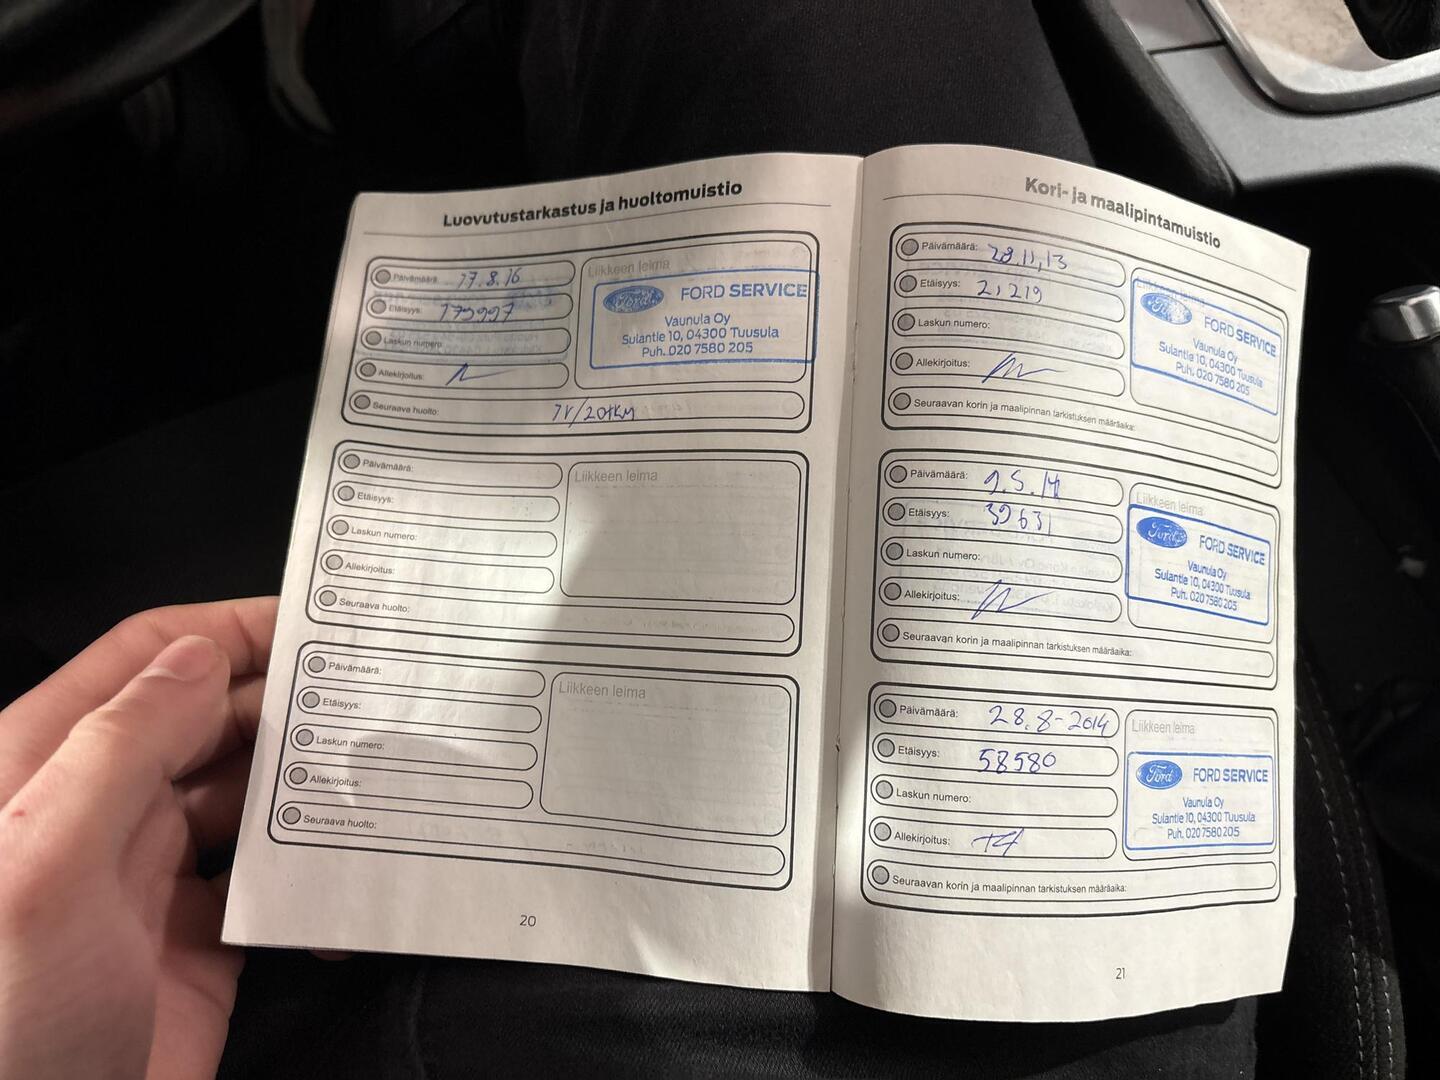 Luovutustarkastus ja huoltomuistio
Päivämäärä: 17.8.16
Etäisyys: 179997
Laskun numero:
Allekirjoitus:
Liikkeen leima
Ford FORD SERVICE
Vaunula Oy
Sulantie 10, 04300 Tuusula
Puh. 020 7580 205
Seuraava huolto: 1V/20tKM
Päivämäärä:
Etäisyys:
Laskun numero:
Allekirjoitus:
Liikkeen leima
Seuraava huolto:
Päivämäärä:
Etäisyys:
Laskun numero:
Allekirjoitus:
Liikkeen leima
Seuraava huolto:
20
Kori- ja maalipintamuistio
Päivämäärä: 28.11.13
Etäisyys: 21219
Laskun numero:
Allekirjoitus:
Liikkeen leima
Ford FORD SERVICE
Vaunula Oy
Sulantie 10, 04300 Tuusula
Puh. 020 7580 205
Seuraavan korin ja maalipinnan tarkistuksen määräaika:
Päivämäärä: 9.5.14
Etäisyys: 39631
Laskun numero:
Allekirjoitus:
Liikkeen leima
Ford FORD SERVICE
Vaunula Oy
Sulantie 10, 04300 Tuusula
Puh. 020 7580 205
Seuraavan korin ja maalipinnan tarkistuksen määräaika:
Päivämäärä: 28.8-2014
Etäisyys: 58580
Laskun numero:
Allekirjoitus:
Liikkeen leima
Ford FORD SERVICE
Vaunula Oy
Sulantie 10, 04300 Tuusula
Puh. 020 7580 205
Seuraavan korin ja maalipinnan tarkistuksen määräaika:
21